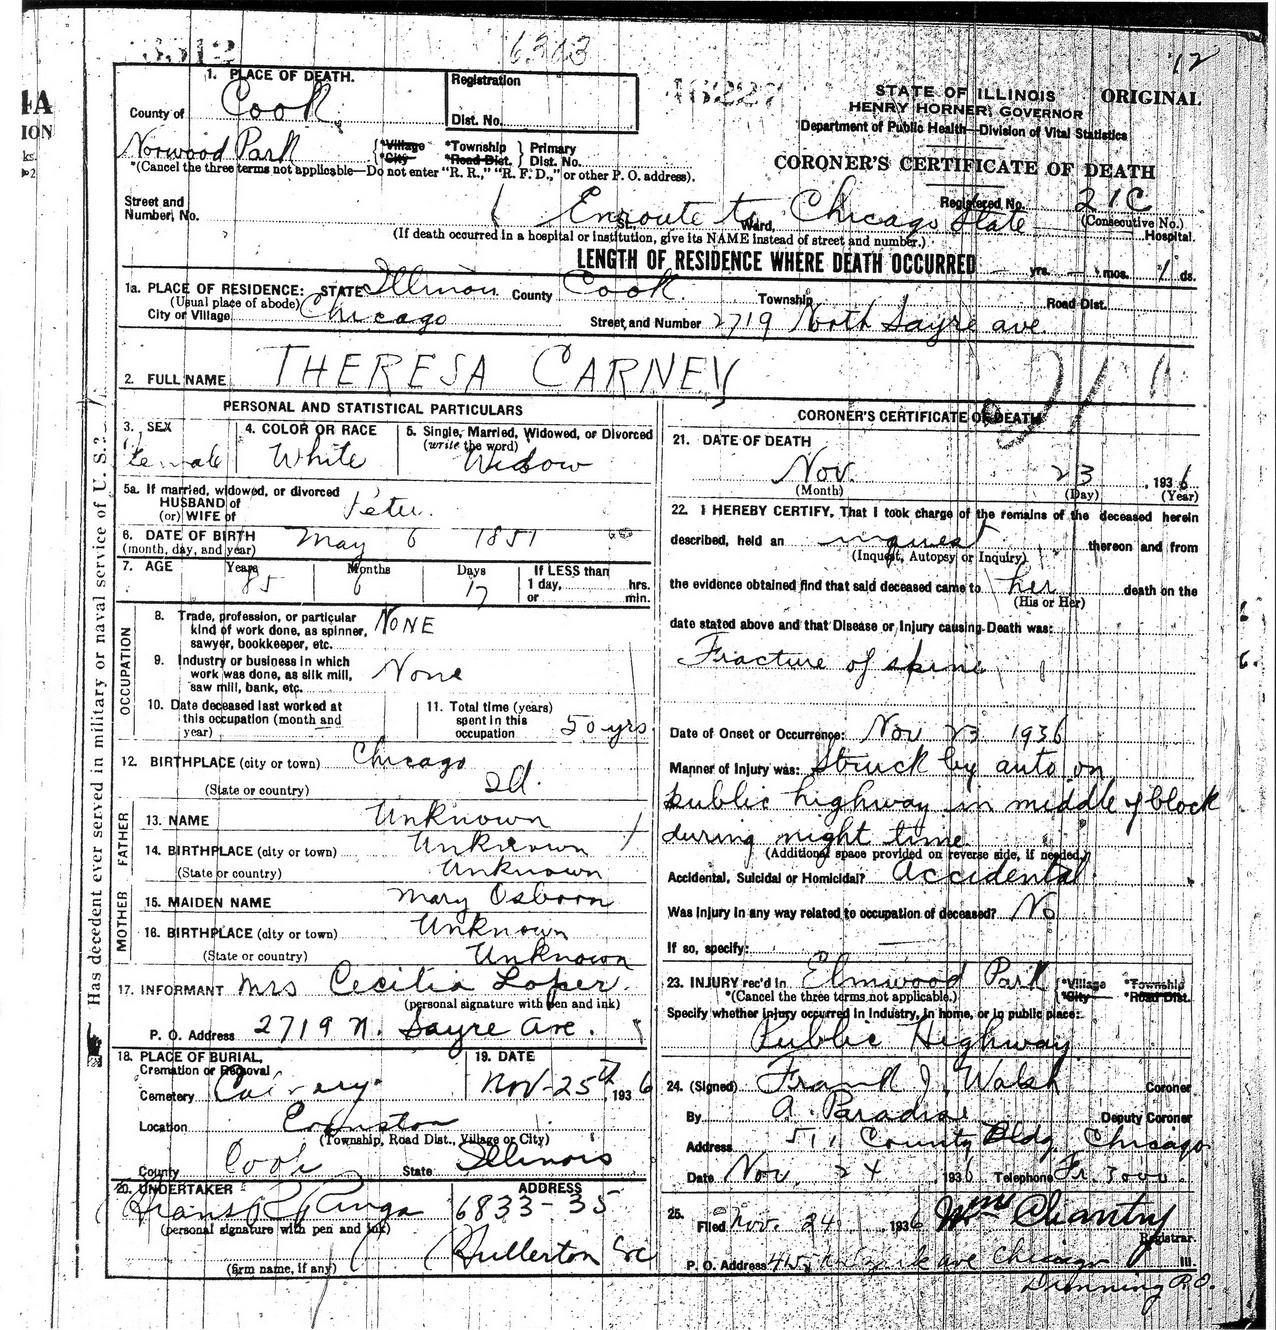 3512
6303
46227
'12
1. PLACE OF DEATH.
Registration
Dist. No.
STATE OF ILLINOIS
HENRY HORNER, GOVERNOR
Department of Public Health—Division of Vital Statistics
ORIGINAL
County of Cook
Norwood Park
*Village
*City
*Township
*Road Dist.
Primary
Dist. No.
*(Cancel the three terms not applicable—Do not enter "R. R.," "R. F. D.," or other P. O. address).
CORONER'S CERTIFICATE OF DEATH
Registered No. 21C
(Consecutive No.)
Street and
Number, No. Enroute to Chicago State
St., Ward, Hospital.
(If death occurred in a hospital or institution, give its NAME instead of street and number.)
LENGTH OF RESIDENCE WHERE DEATH OCCURRED — yrs. — mos. 1 ds.
1a. PLACE OF RESIDENCE: STATE Illinois County Cook Township Road Dist.
(Usual place of abode)
City or Village Chicago Street and Number 2719 North Sayre ave.
2. FULL NAME THERESA CARNEY
PERSONAL AND STATISTICAL PARTICULARS
3. SEX
female
4. COLOR OR RACE
White
5. Single, Married, Widowed, or Divorced
(write the word)
Widow
5a. If married, widowed, or divorced
HUSBAND of
(or) WIFE of Peter.
6. DATE OF BIRTH
(month, day, and year) May 6 1851
7. AGE Years Months Days If LESS than
1 day, hrs.
or min.
85 6 17
OCCUPATION
8. Trade, profession, or particular
kind of work done, as spinner,
sawyer, bookkeeper, etc. NONE
9. Industry or business in which
work was done, as silk mill,
saw mill, bank, etc. None
10. Date deceased last worked at
this occupation (month and
year)
11. Total time (years)
spent in this
occupation 50 yrs
12. BIRTHPLACE (city or town) Chicago
(State or country) Ill.
FATHER
13. NAME Unknown
14. BIRTHPLACE (city or town) Unknown
(State or country) Unknown
MOTHER
15. MAIDEN NAME Mary Osborn
16. BIRTHPLACE (city or town) Unknown
(State or country) Unknown
17. INFORMANT Mrs Cecilia Loper.
(personal signature with pen and ink)
P. O. Address 2719 N. Sayre Ave.
18. PLACE OF BURIAL,
Cremation or Removal
Cemetery Calvery
19. DATE
Nov-25th, 1936
Location Evanston
(Township, Road Dist., Village or City)
County Cook State Illinois
20. UNDERTAKER
(personal signature with pen and ink)
(firm name, if any)
ADDRESS
6833-35
Fullerton
Has decedent ever served in military or naval service of U. S.?
CORONER'S CERTIFICATE OF DEATH
21. DATE OF DEATH
Nov. 23, 1936
(Month) (Day) (Year)
22. I HEREBY CERTIFY, That I took charge of the remains of the deceased herein
described, held an inquest thereon and from
(Inquest, Autopsy or Inquiry)
the evidence obtained find that said deceased came to her death on the
(His or Her)
date stated above and that Disease or Injury causing Death was:
Fracture of spine
Date of Onset or Occurrence: Nov 23 1936
Manner of Injury was: Struck by auto on
public highway in middle of block
during night time
(Additional space provided on reverse side, if needed.)
Accidental, Suicidal or Homicidal? Accidental
Was injury in any way related to occupation of deceased? No
If so, specify:
23. INJURY rec'd in Elmwood Park
*Village
*City
*Township
*Road Dist.
*(Cancel the three terms not applicable.)
Specify whether injury occurred in Industry, in home, or in public place:
Public Highway
24. (Signed) Frank J. Walsh Coroner
By A. Paradise Deputy Coroner
Address 511 County Bldg Chicago
Date Nov. 24 1936 Telephone Fr. 3000
25.
Filed Nov. 24 1936 Wm Chantry
Registrar.
P. O. Address ave Chicago Ill.
Dunning P.O.